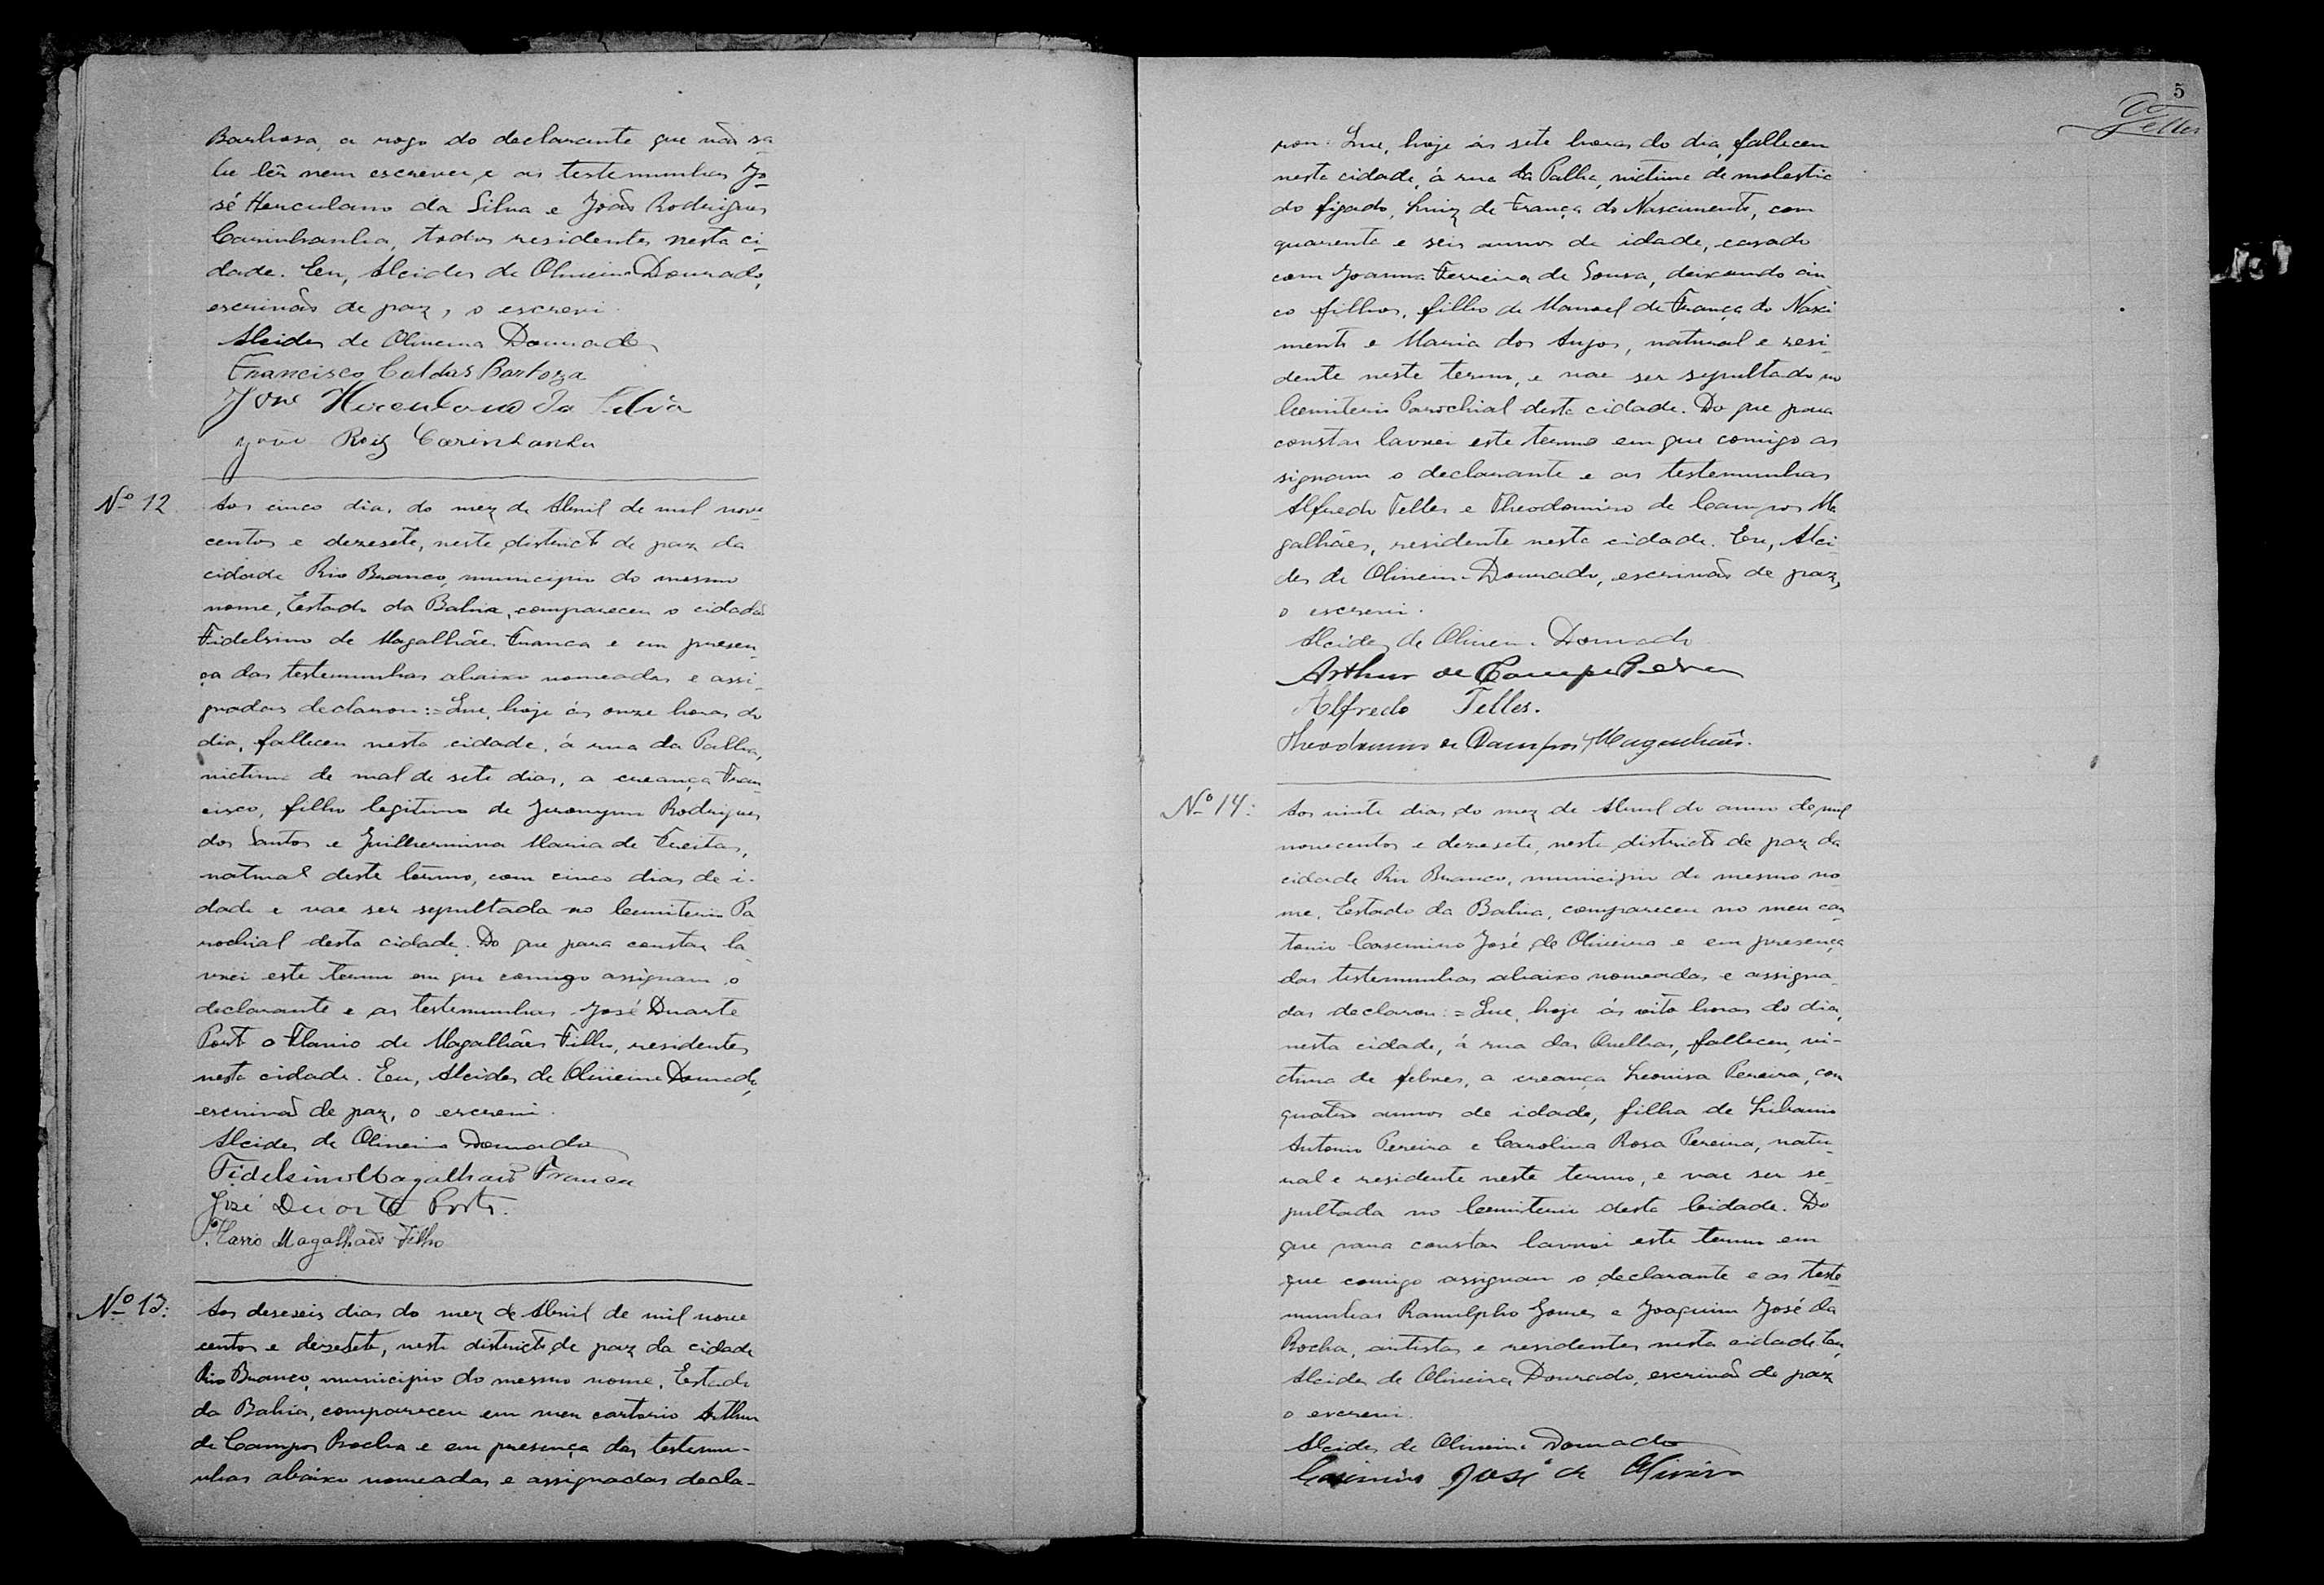 Barbosa, a rogo do declarante que não sa
be lêr nem escrever, e as testemunhas Jo-
sé Herculano da Silva e João Rodrigues
Carinhanha, todos residentes nesta ci-
dade. Eu, Alcides de Oliveira Dourado,
escrivão de paz, o escrevi.
Alcides de Oliveira Dourado
Francisco Caldas Barboza
José Herculano da Silva
João Roiz Carinhanha
Nº 12
Aos cinco dias do mez de Abril de mil nove-
centos e dezesete, neste districto de paz da
cidade Rio Branco, municipio do mesmo
nome, Estado da Bahia, compareceu o cidadão
Fidelsino de Magalhães Franca e em presen-
ça das testemunhas abaixo nomeadas e assi-
gnadas declarou:=Que, hoje ás onze horas do
dia, falleceu nesta cidade, á rua da Palha,
victima de mal de sete dias, a creança Fran
cisco, filho legitimo de Jeronymo Rodrigues
dos Santos e Guilhermina Maria de Freitas,
natural deste têrmo, com cinco dias de i-
dade e vae ser sepultada no Cemiterio Pa
rochial desta cidade. Do que para constar la-
vrei este termo em que comigo assignam o
declarante e as testemunhas José Duarte
Port o Flavio de Magalhães Filho, residentes
nesta cidade. Eu, Alcides de Oliveira Dourado,
escrivão de paz, o escrevi.
Alcides de Oliveira Dourado
Fidelsino Magalhaes Franca
José Duarte Porto.
Flavio Magalhaẽs Filho
Nº 13:
Aos deseseis dias do mez de Abril de mil nove
centos e dezesete, neste districto de paz da cidade
Rio Branco, municipio do mesmo nome, Estado
da Bahia, compareceu em meu cartorio Arthur
de Campos Rocha e em presença das testemu-
nhas abaixo nomeadas e assignadas decla-
5
Telles
rou: Que, hoje ás sete horas do dia, falleceu
neste cidade, á rua da Palha, victima de molestia
do figado, Luiz de França do Nascimento, com
quarenta e seis annos de idade, casado
com Joanna Ferreira de Sousa, deixando cin
co filhos, filho de Manoel de França do Nasci
mento e Maria dos Anjos, natural e resi-
dente neste termo, e vae ser sepultado no
Cemiterio Parochial desta cidade. Do que para
constar lavrei este termo em que comigo as
signam o declarante e as testemunhas
Alfredo Telles e Theodomiro de Campos Ma
galhães, residente nesta cidade. Eu, Alci-
des de Oliveira Dourado, escrivão de paz,
o escrevi.
Alcides de Oliveira Dourado
Arthur de Campos
Alfredo Telles.
Theodomiro de Campos Magalhães.
Nº 14:
Aos vinte dias do mez de Abril do anno de mil
novecentos e dezesete, neste districto de paz da
cidade Rio Branco, municipio do mesmo no
me, Estado da Bahia, compareceu no meu car
torio Casemiro José de Oliveira e em presença
das testemunhas abaixo nomeadas e assigna-
das declarou:=Que, hoje ás oito horas do dia,
nesta cidade, á rua das Ovelhas, falleceu, vi-
ctima de febres, a creança Leonisa Pereira, com
quatro annos de idade, filha de Libanio
Antonio Pereira e Carolina Rosa Pereira, natu-
ral e residente neste termo, e vae ser se-
pultada no Cemiterio desta Cidade. Do
que para constar lavrei este termo em
que comigo assignam o declarante e as teste-
munhas Ranulpho Gomes e Joaquim José da
Rocha, artistas e residentes nesta cidade. Eu,
Alcides de Oliveira Dourado, escrivão de paz
o escrevi.
Alcides de Oliveira Dourado
Casimiro José de Oliveira